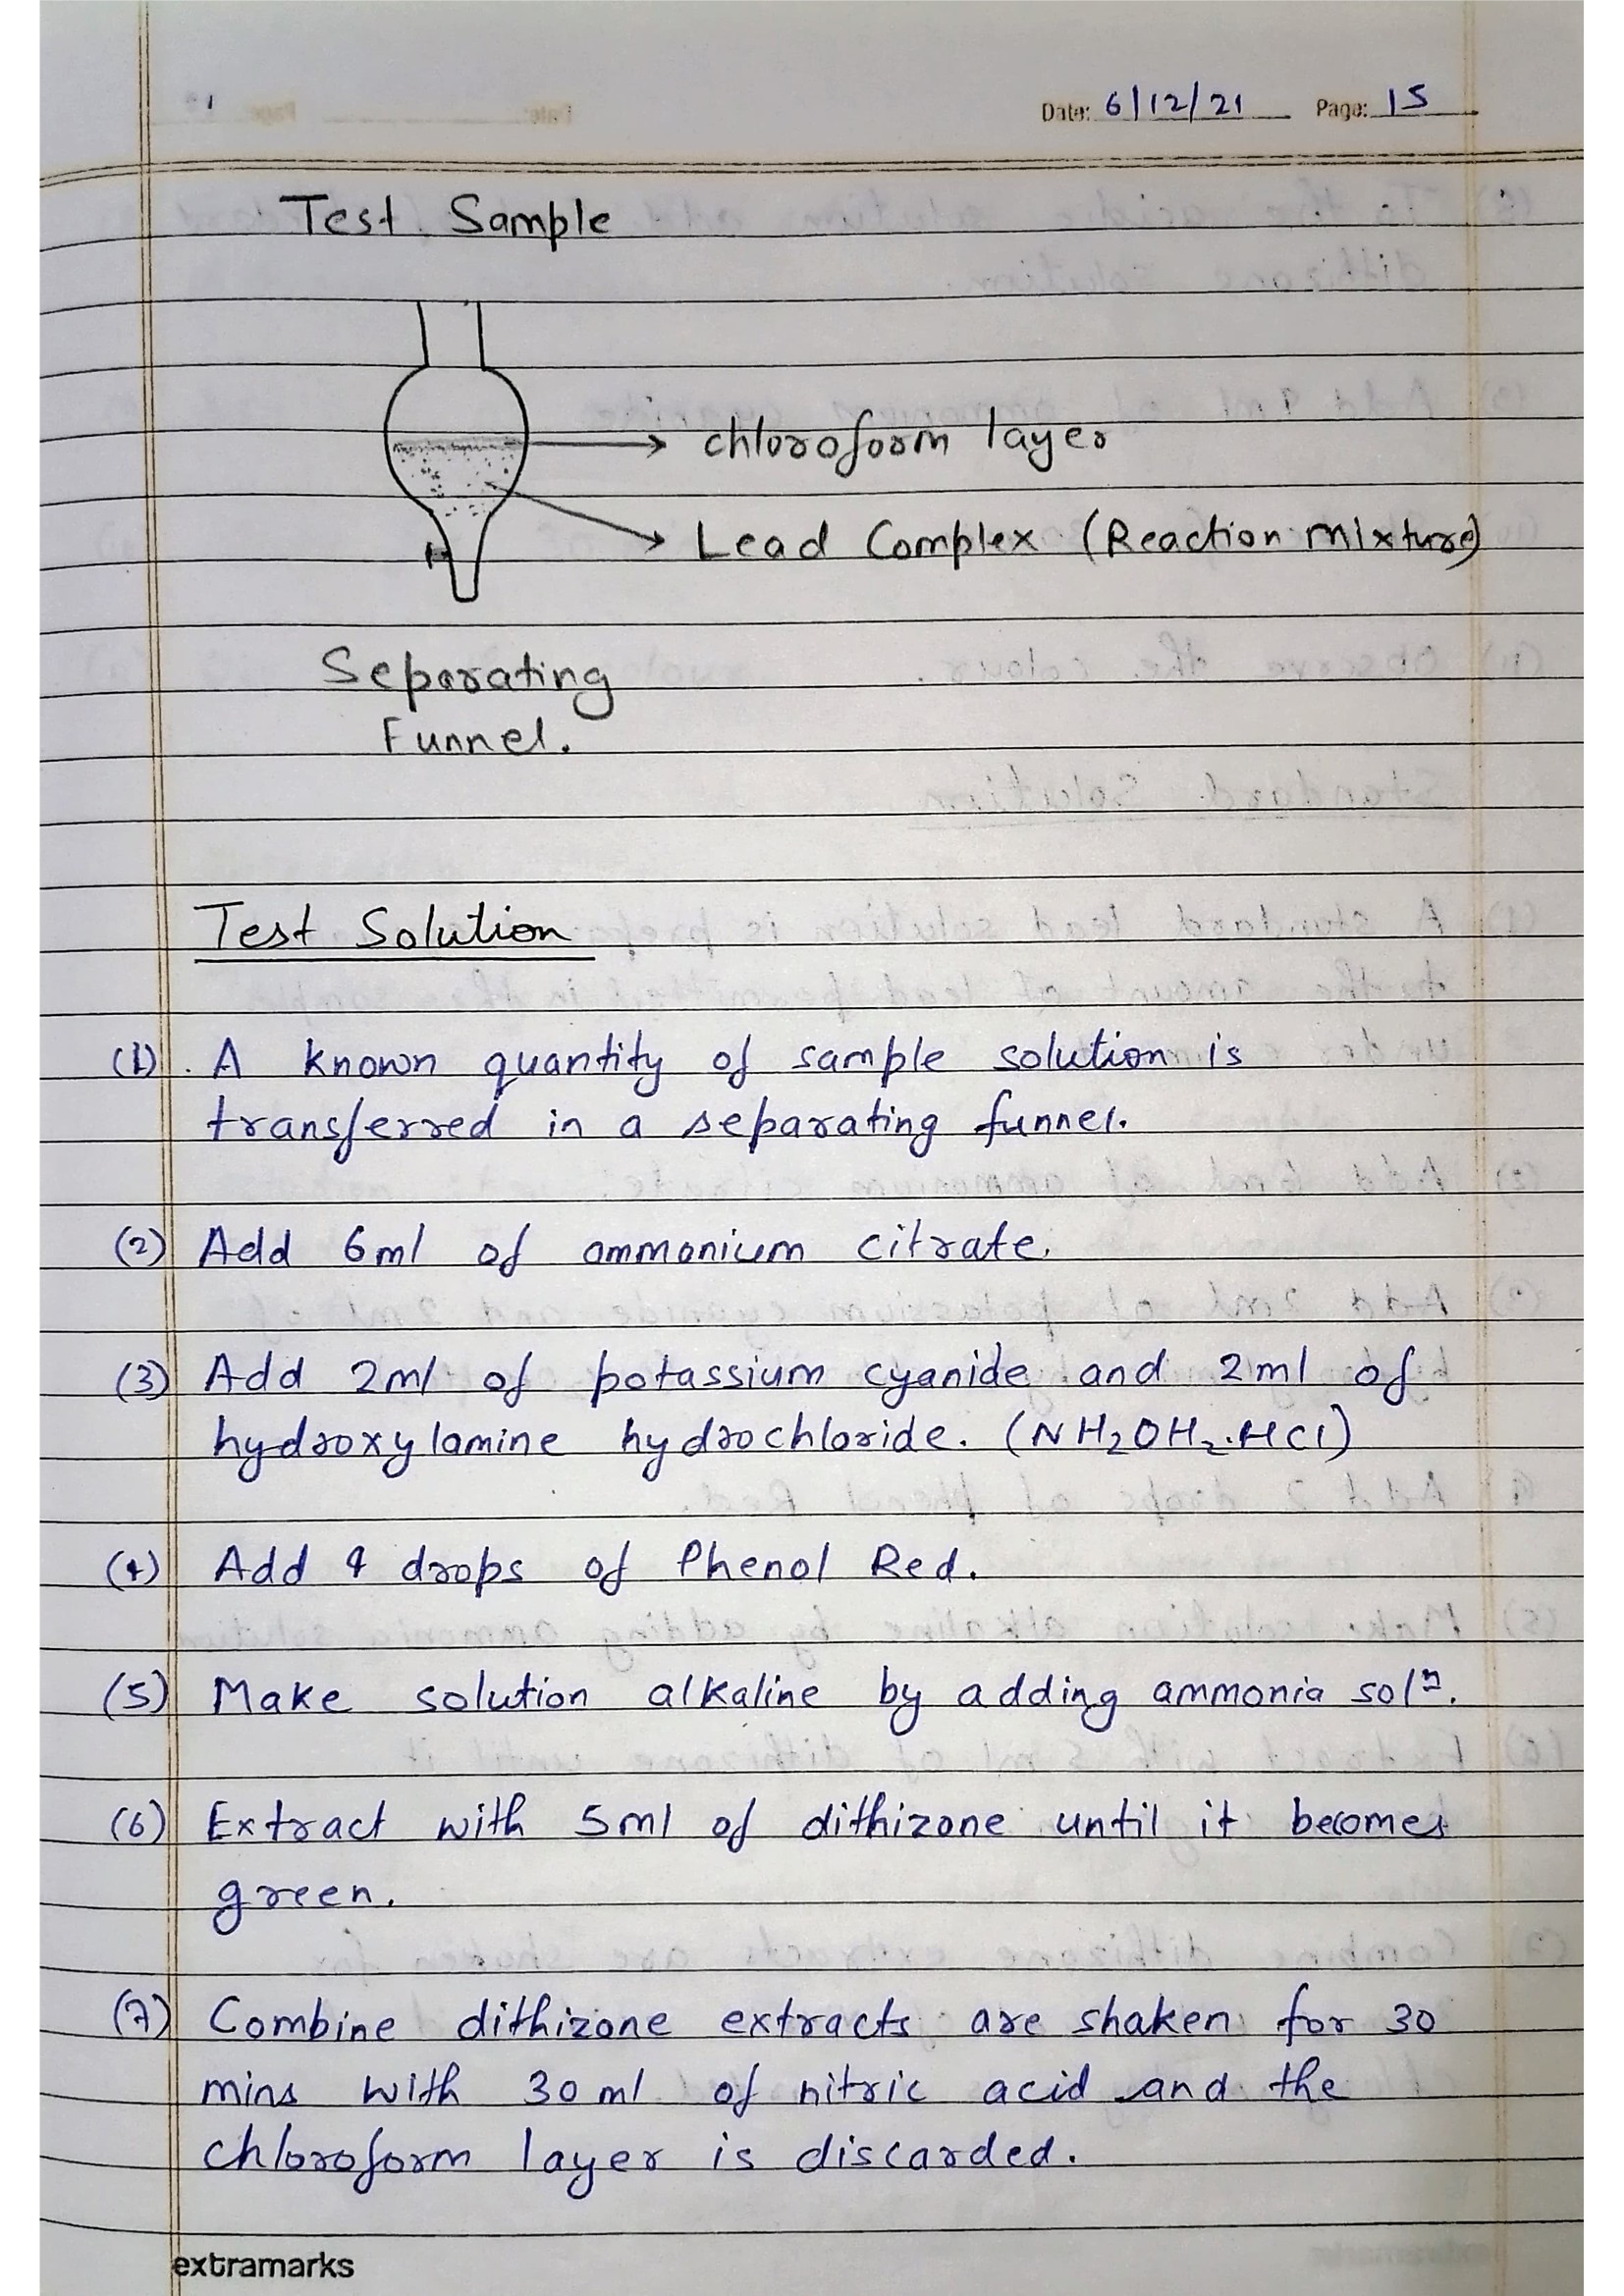 Date: 6/12/21 Page: 15
Test Sample
chloroform layer
Lead Complex (Reaction mixture)
Separating
Funnel.
Test Solution
(1) A known quantity of sample solution is
transferred in a separating funnel.
(2) Add 6ml of ammonium citrate.
(3) Add 2ml of potassium cyanide and 2ml of
hydroxylamine hydrochloride. (NH₂OH₂.HCl)
(4) Add 4 drops of Phenol Red.
(5) Make solution alkaline by adding ammonia solⁿ.
(6) Extract with 5ml of dithizone until it becomes
green.
(7) Combine dithizone extracts are shaken for 30
mins with 30ml of nitric acid and the
chloroform layer is discarded.
extramarks